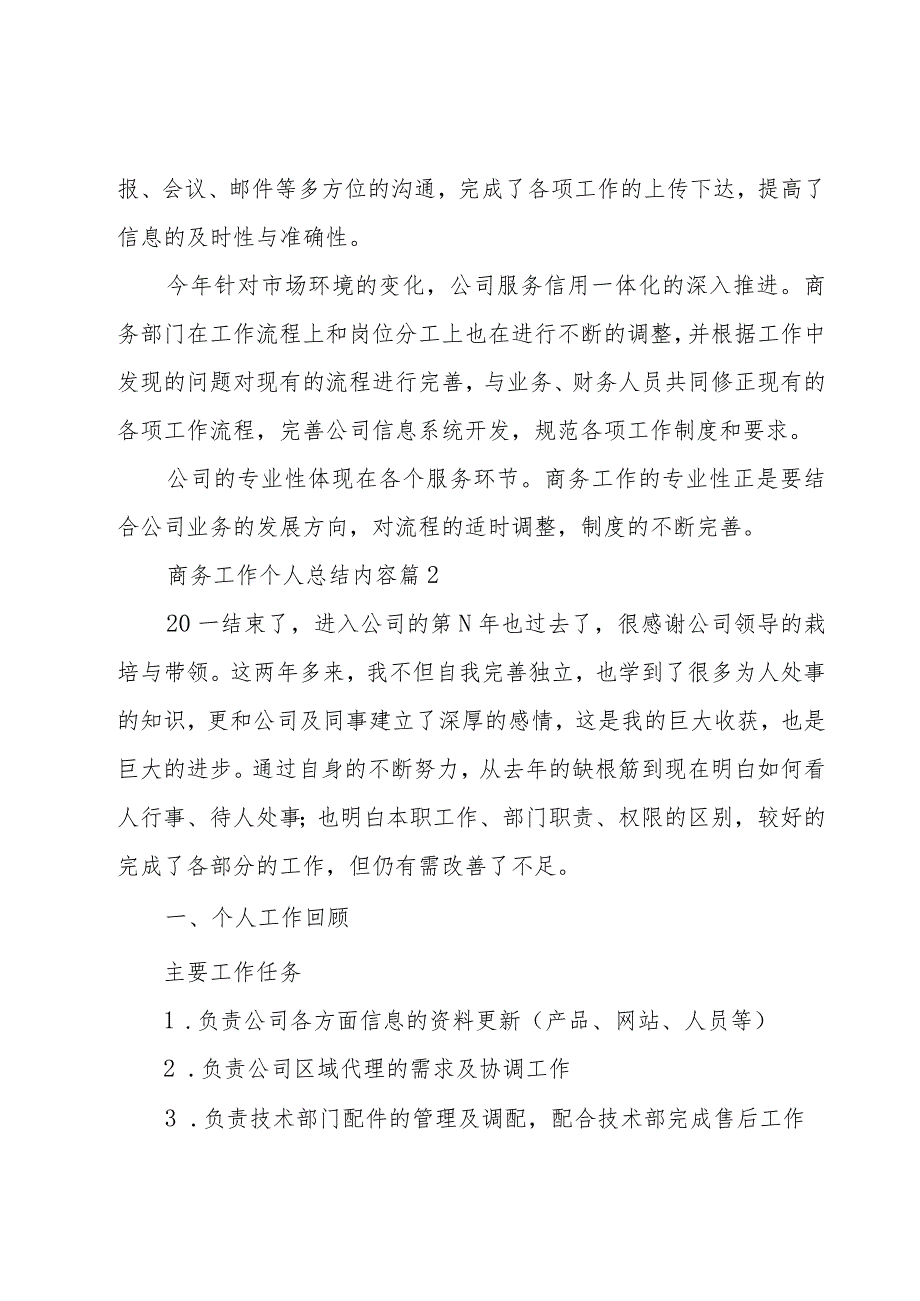 报、会议、邮件等多方位的沟通，完成了各项工作的上传下达，提高了
信息的及时性与准确性。
今年针对市场环境的变化，公司服务信用一体化的深入推进。商
务部门在工作流程上和岗位分工上也在进行不断的调整，并根据工作中
发现的问题对现有的流程进行完善，与业务、财务人员共同修正现有的
各项工作流程，完善公司信息系统开发，规范各项工作制度和要求。
公司的专业性体现在各个服务环节。商务工作的专业性正是要结
合公司业务的发展方向，对流程的适时调整，制度的不断完善。
商务工作个人总结内容篇2
20一结束了，进入公司的第N年也过去了，很感谢公司领导的栽
培与带领。这两年多来，我不但自我完善独立，也学到了很多为人处事
的知识，更和公司及同事建立了深厚的感情，这是我的巨大收获，也是
巨大的进步。通过自身的不断努力，从去年的缺根筋到现在明白如何看
人行事、待人处事；也明白本职工作、部门职责、权限的区别，较好的
完成了各部分的工作，但仍有需改善了不足。
一、个人工作回顾
主要工作任务
1.负责公司各方面信息的资料更新（产品、网站、人员等）
2.负责公司区域代理的需求及协调工作
3.负责技术部门配件的管理及调配，配合技术部完成售后工作